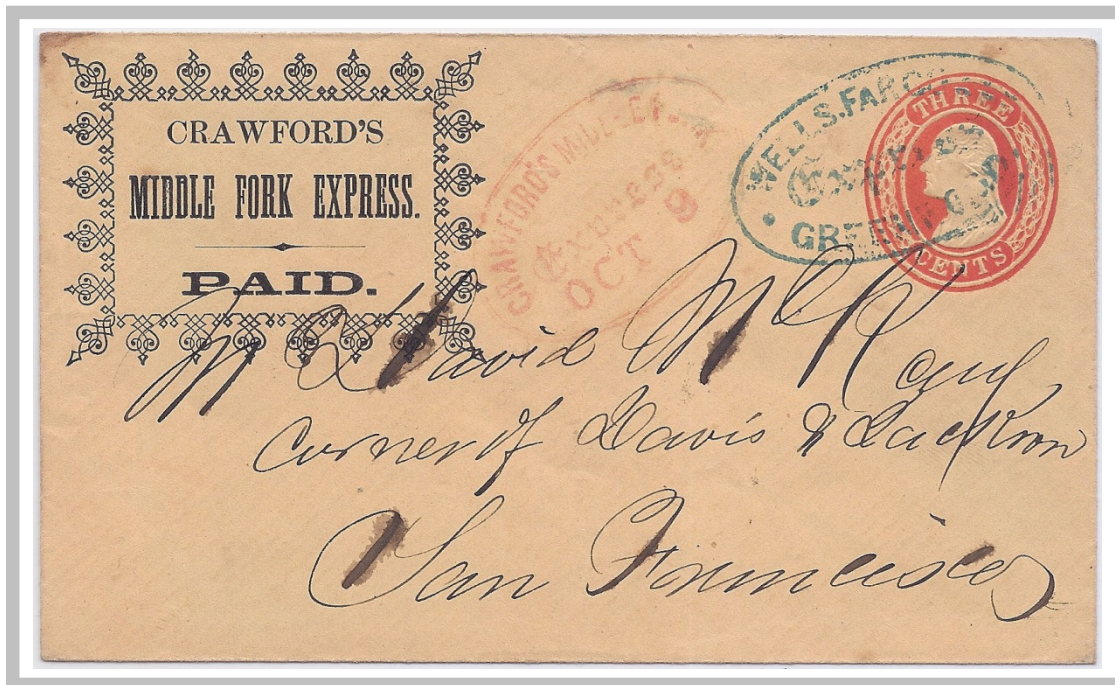 CRAWFORD'S
MIDDLE FORK EXPRESS.
PAID.
CRAWFORD'S MIDDLE
OCT
9
WELLS. FARGO
Express
GREEN
THREE
CENTS
David
Corner of Davis & Jackson
San Francisco